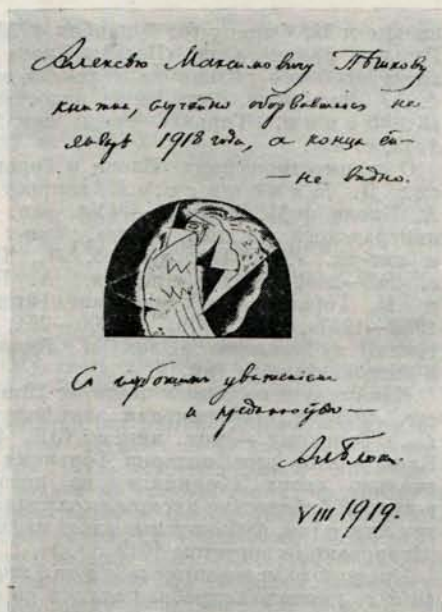 Алексѣю Максимовичу Пѣшкову
книжка, случайно оборвавшаяся на
январѣ 1918 года, а конца ей —
— не видно.
Съ глубокимъ уваженіемъ
и преданностью —
Ал. Блокъ.
VIII 1919.